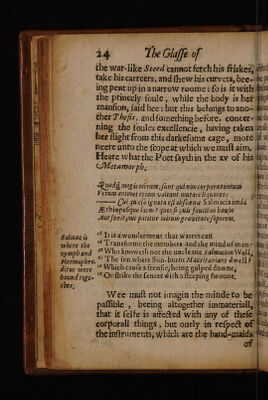 24 The Glasse of
the war-like Steed cannot fetch his friskes,
take his carreers, and shew his curvets, bee-
ing pent up in a narrow roome: so is it with
the princely soule, while the body is her
mansion, said hee: but this belongs to ano-
ther Thesis, and something before, concer-
ning the soules excellencie, having taken
her flight from this darkesome cage, more
neere unto the scope at which we must aim.
Heare what the Poet sayth in the xv of his
Metamorph.
Quodq; magis mirum, sunt qui non corpora tantum
Verum animos etiam valeant mutare liquores:
Cui non audita est obscœnæ Salmacis undæ
Æthiopesque lacus? quos si quis faucibus hausit
Aut furit, aut patitur mirum gravitate soporem.
Salmacis is
where the
nymph and
Hermaphro-
ditus were
bound toge-
ther.
It is a wonderment that waters can
Transforme the members and the mind of man:
Who knoweth not the uncleane Salmacian Well,
The fen where Sun-burnt Mauritanians dwell?
Which causes frensie, being gulped downe,
Or strikes the senses with a sleeping swoone.
Wee must not imagin the minde to be
passible, beeing altogether immateriall,
that it selfe is affected with any of these
corporall things, but onely in respect of
the instruments, which are the hand-maids
of